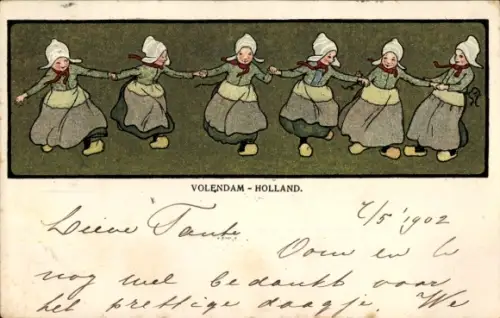 VOLENDAM - HOLLAND.
7/5 '1902
Lieve Tante
Oom en
nog wel bedankt voor
het prettige daagje. We